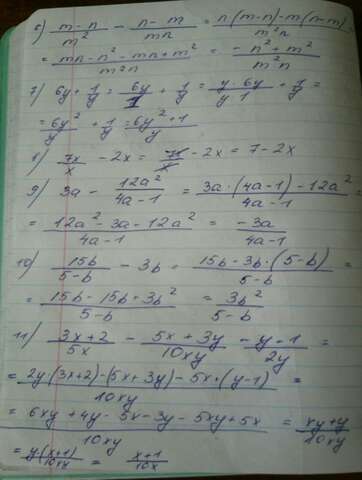 6) m-n/m² - n-m/mn = n(m-n)-m(n-m)/m²n =
= mn-n²-mn+m²/m²n = -n²+m²/m²n
7) 6y+1/y = 6y/1 + 1/y = y·6y/y·1 + 1/y =
= 6y²/y + 1/y = 6y²+1/y
8) 7x/x - 2x = 7x/x - 2x = 7-2x
9) 3a - 12a²/4a-1 = 3a·(4a-1)-12a²/4a-1 =
= 12a²-3a-12a²/4a-1 = -3a/4a-1
10) 15b/5-b - 3b = 15b-3b·(5-b)/5-b =
= 15b-15b+3b²/5-b = 3b²/5-b
11) 3x+2/5x - 5x+3y/10xy - y-1/2y =
= 2y(3x+2)-(5x+3y)-5x·(y-1)/10xy =
= 6xy+4y-5x-3y-5xy+5x/10xy = xy+y/10xy
= y(x+1)/10xy = x+1/10x